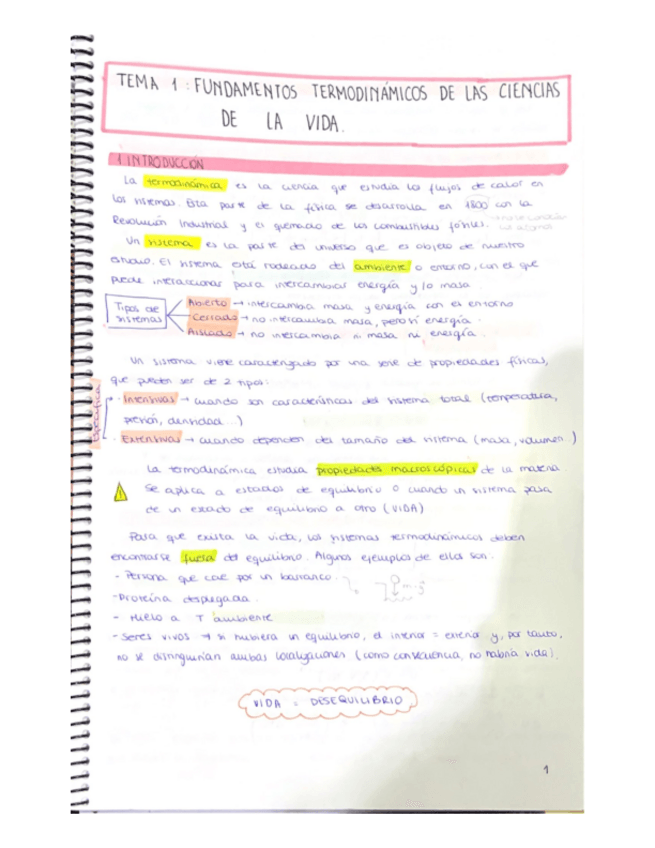 TEMA 1 : FUNDAMENTOS TERMODINÁMICOS DE LAS CIENCIAS
DE LA VIDA.
1 INTRODUCCIÓN
La termodinámica es la ciencia que estudia los flujos de calor en
los sistemas. Esta parte de la física se desarrolla en 1800 con la
Revolución Industrial y el quemado de los combustibles fósiles.
Un sistema es la parte del universo que es objeto de nuestro
estudio. El sistema está rodeado del ambiente o entorno, con el que
puede interaccionar para intercambiar energía y/o masa.
Tipos de sistemas
Abierto → intercambia masa y energía con el entorno
Cerrado → no intercambia masa, pero sí energía.
Aislado → no intercambia ni masa ni energía.
Un sistema viene caracterizado por una serie de propiedades físicas,
que pueden ser de 2 tipos:
Específica
· Intensivas → cuando son características del sistema total (temperatura,
presión, densidad...)
· Extensivas → cuando dependen del tamaño del sistema (masa, volumen...)
La termodinámica estudia propiedades macroscópicas de la materia.
Se aplica a estados de equilibrio o cuando un sistema pasa
de un estado de equilibrio a otro (VIDA)
Para que exista la vida, los sistemas termodinámicos deben
encontrarse fuera del equilibrio. Algunos ejemplos de ellos son:
- Persona que cae por un barranco.
- Proteína desplegada.
- Hielo a T ambiente
- Seres vivos → si hubiera un equilibrio, el interior = exterior y, por tanto,
no se distinguirían ambas localizaciones (como consecuencia, no habría vida).
VIDA = DESEQUILIBRIO
1